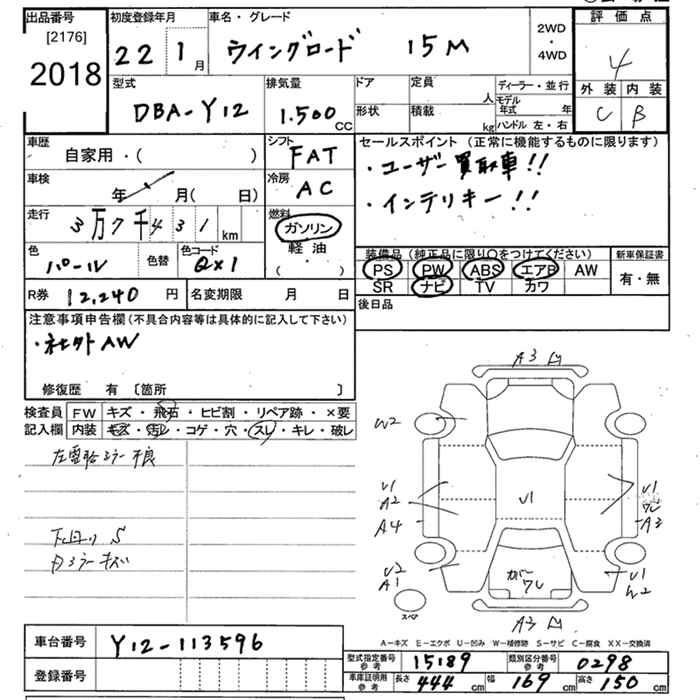 出品番号 初度登録年月 車名・グレード 2WD ・ 4WD 評価点
[2176]
2018 22 1月 ウイングロード 15M 4
型式 排気量 ドア 定員 人 ディーラー・並行 外装 内装
DBA-Y12 1.500 CC 形状 積載 kg モデル年式 年 ハンドル 左・右 C B
車歴 自家用・( ) シフト FAT セールスポイント (正常に機能するものに限ります)
車検 年 月( 日) 冷房 AC ・ユーザー買取車!!
・インテリキー!!
走行 3万7千431km 燃料 ガソリン 軽油 ( ・ )
色 パール 色替 色コード QX1
装備品 (純正品に限り○をつけてください) 新車保証書
PS PW ABS エアB AW 有・無
SR ナビ TV カワ
R券 12,240円 名変期限 月 日 後日品
注意事項申告欄(不具合内容等は具体的に記入して下さい)
・社外AW
修復歴 有 〔箇所 〕
検査員 FW キズ・飛石・ヒビ割・リペア跡・×要
記入欄 内装 キズ・汚レ・コゲ・穴・スレ・キレ・破レ
下回り S
内ミラーキズ
A3
W2
U1 U1 U1
A2
A4 A3
U2 U1
A1 W2
カバーワレ
スペア
A3
A-キズ E-エクボ U-凹み W-補修跡 S-サビ C-腐食 XX-交換済
車台番号 Y12-113596
登録番号
型式指定番号参考 15189 類別区分番号参考 0298
車庫証明用参考 長さ 444cm 幅 169cm 高さ 150cm